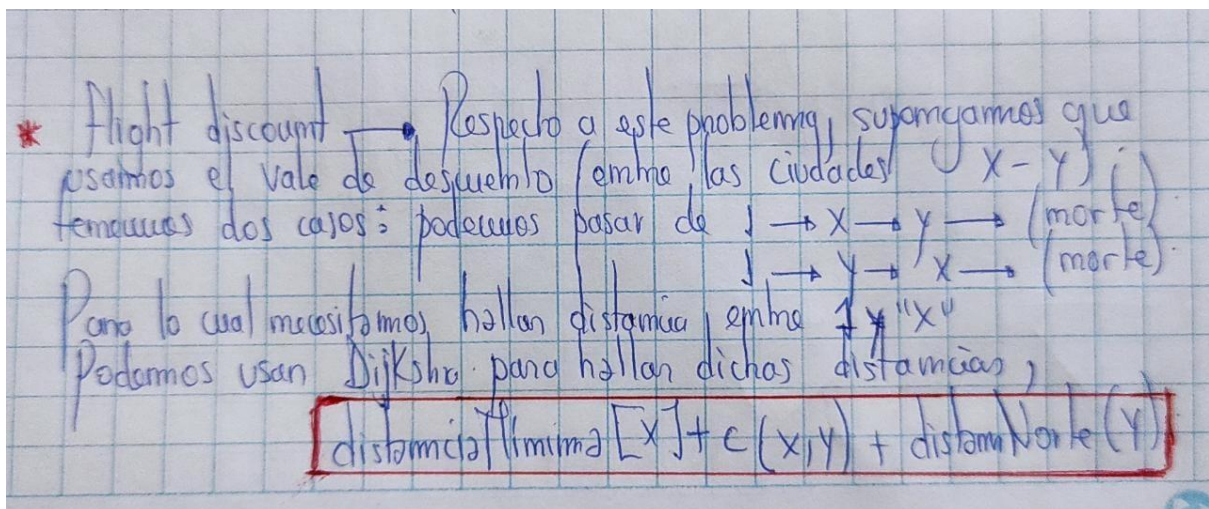 * Flight discount → Respecto a este problema, supongamos que
usamos el vale de descuento (entre las ciudades X - Y);
tenemos dos casos: podemos pasar de 1 → X → Y → (norte)
1 → Y → X → (norte).
Para lo cual necesitamos hallar distancia entre 1 y "X"
Podemos usar Dijkstra para hallar dichas distancias,
distanciaMinima[X] + c(X,Y) + distanNorte(Y)